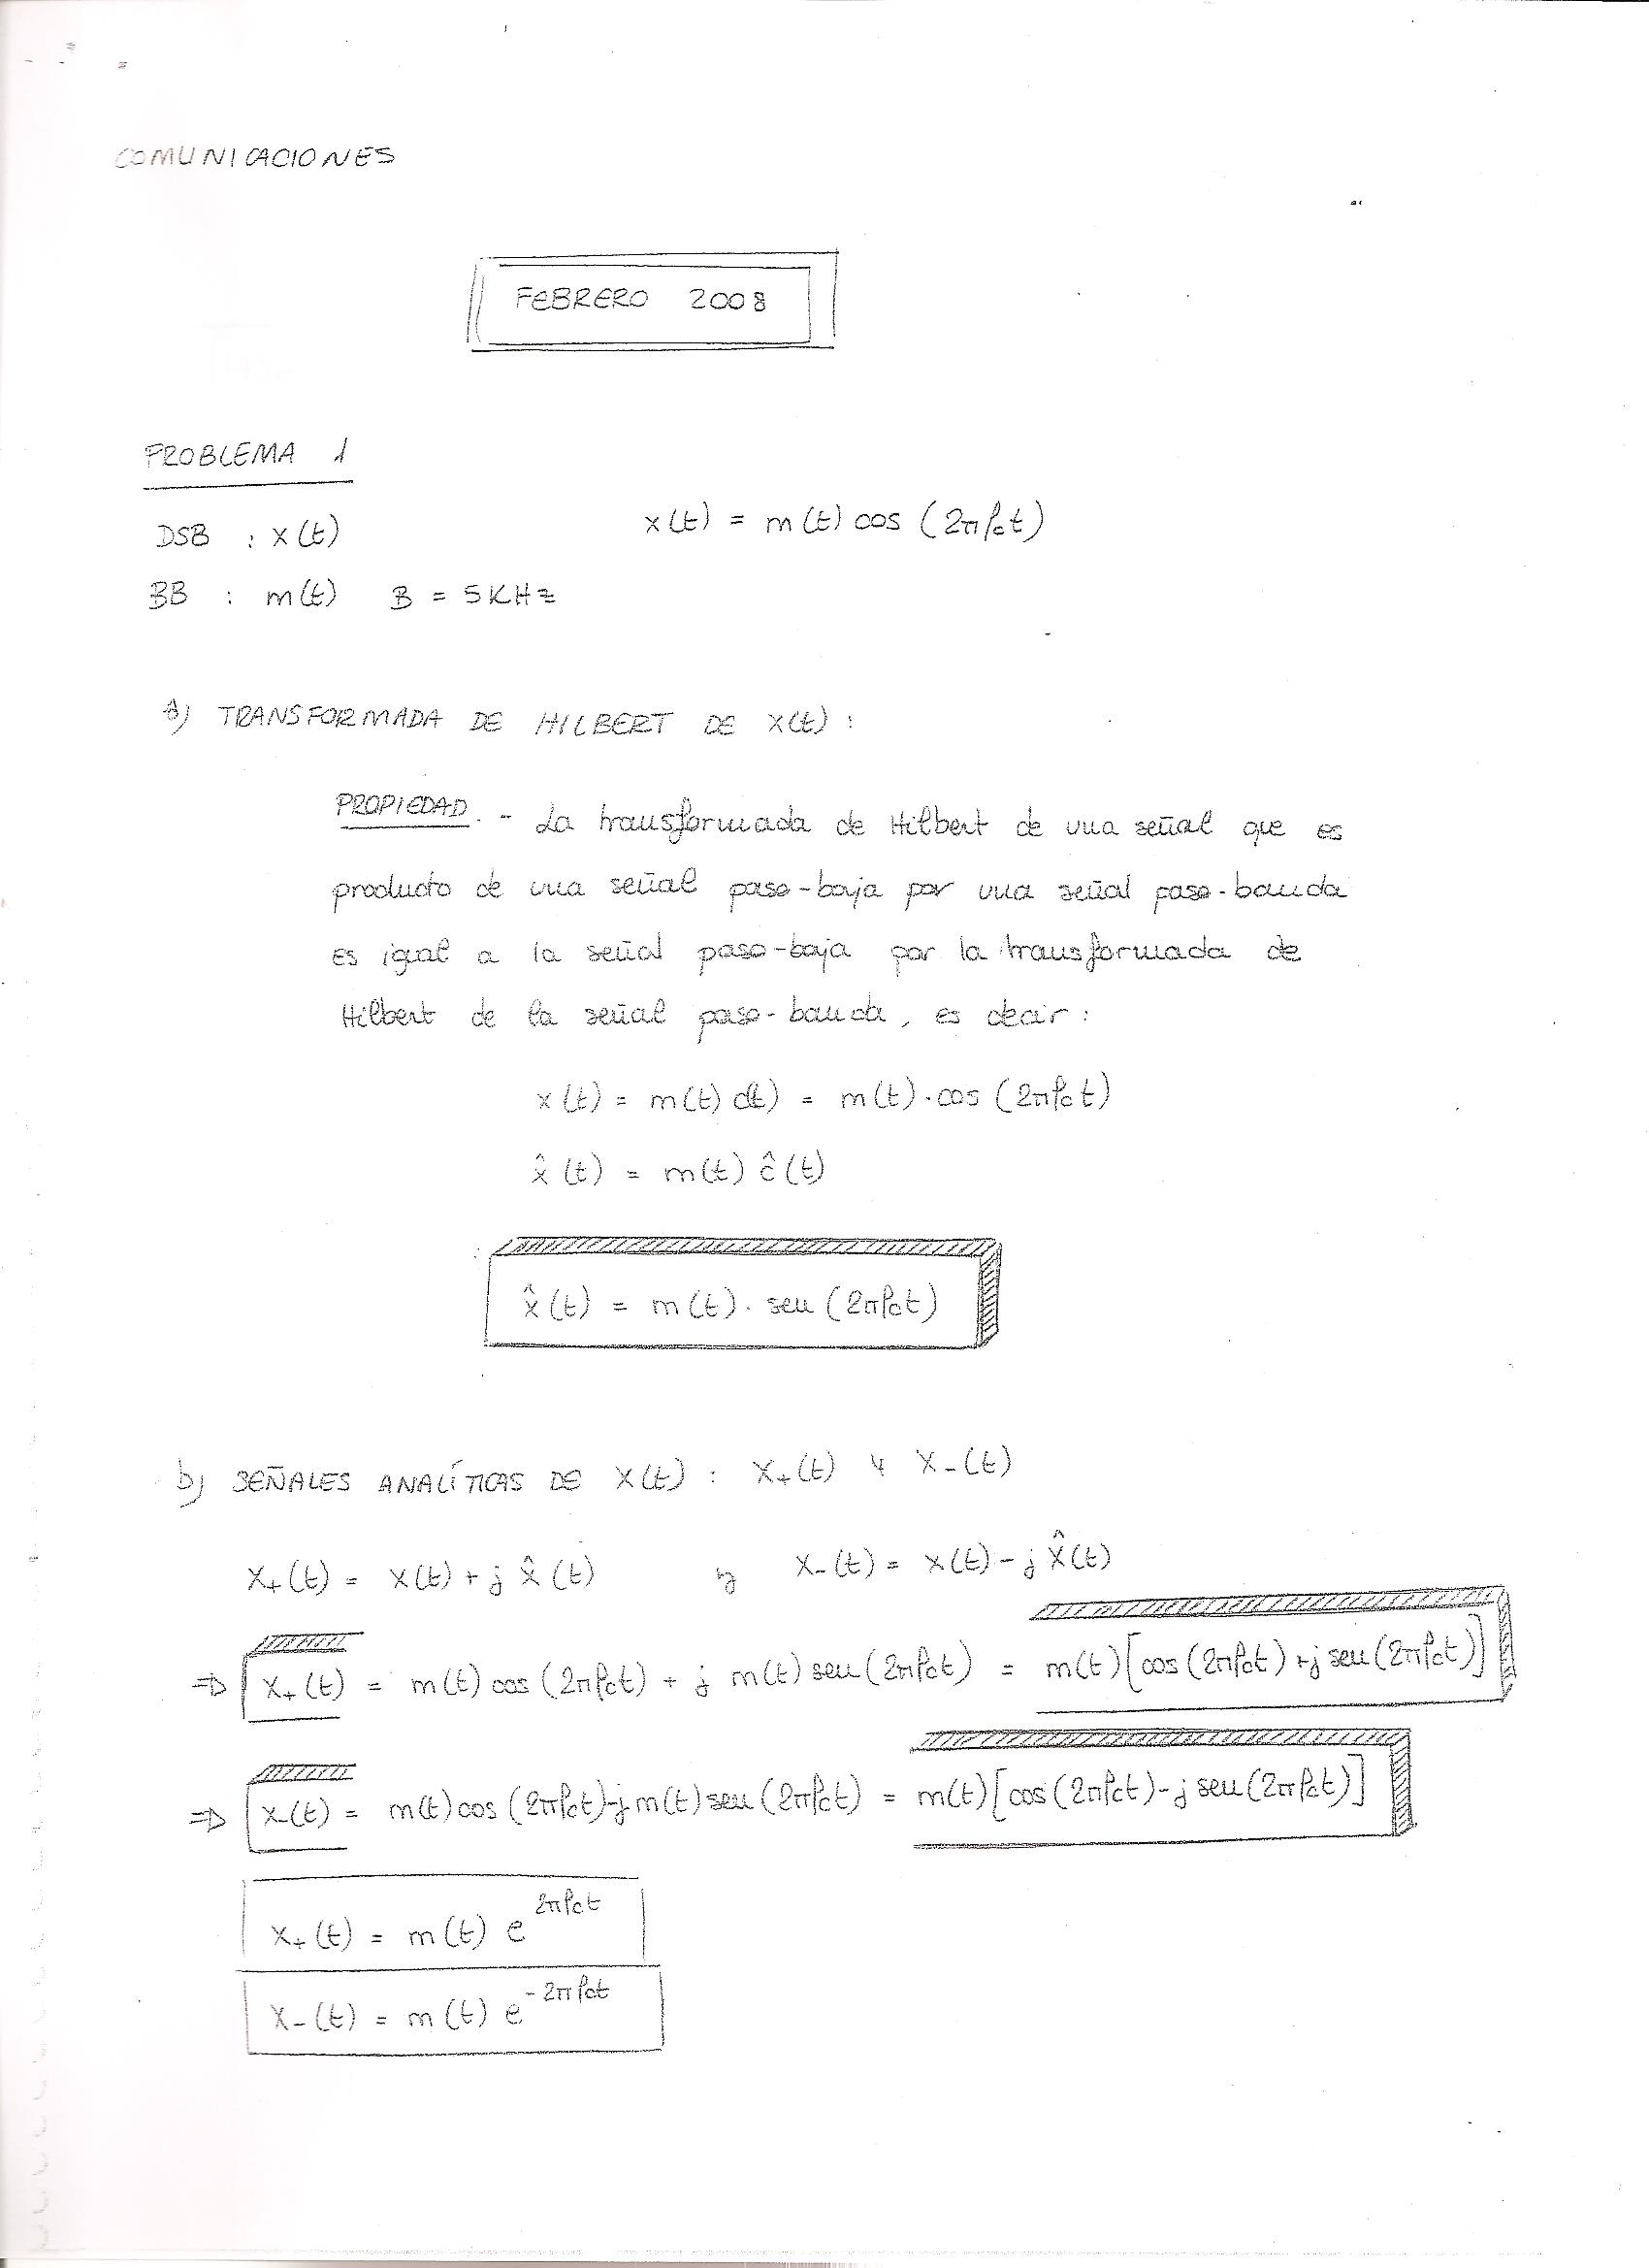 COMUNICACIONES
FEBRERO 2008
PROBLEMA 1
DSB : x(t)
x(t) = m(t) cos (2πfct)
BB : m(t) B = 5KHz
a) TRANSFORMADA DE HILBERT DE x(t) :
PROPIEDAD. - La transformada de Hilbert de una señal que es
producto de una señal paso-baja por una señal paso-banda
es igual a la señal paso-baja por la transformada de
Hilbert de la señal paso-banda, es decir :
x(t) = m(t) c(t) = m(t)·cos (2πfct)
x̂(t) = m(t) ĉ(t)
x̂(t) = m(t)· sen (2πfct)
b) SEÑALES ANALÍTICAS DE x(t) : x₊(t) y x₋(t)
x₊(t) = x(t) + j x̂(t) y x₋(t) = x(t) - j x̂(t)
⇒ x₊(t) = m(t) cos (2πfct) + j m(t) sen (2πfct) = m(t) [cos (2πfct) + j sen (2πfct)]
⇒ x₋(t) = m(t) cos (2πfct) - j m(t) sen (2πfct) = m(t) [cos (2πfct) - j sen (2πfct)]
x₊(t) = m(t) e^2πfct
x₋(t) = m(t) e^-2πfct